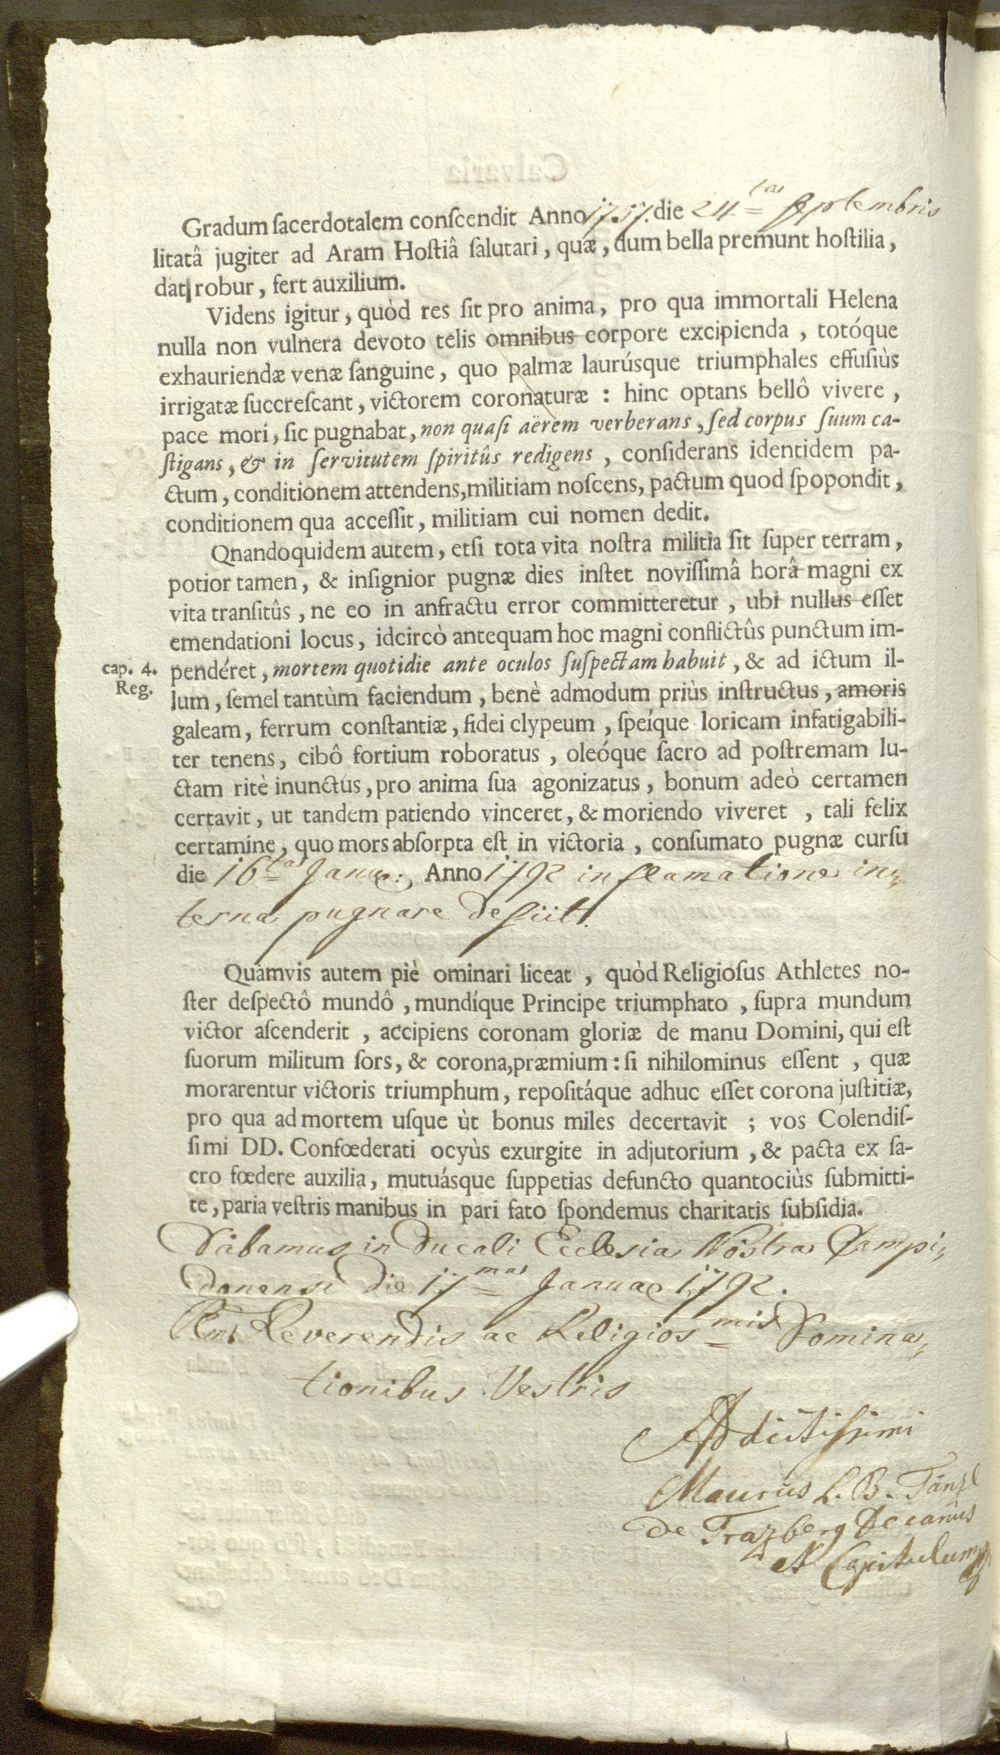 Gradum ſacerdotalem conſcendit Anno 1757. die 24ta Septembris
litatâ jugiter ad Aram Hoſtiâ ſalutari, quæ, dum bella premunt hoſtilia,
dat robur, fert auxilium.
Videns igitur, quòd res ſit pro anima, pro qua immortali Helena
nulla non vulnera devoto telis omnibus corpore excipienda, totóque
exhauriendæ venæ ſanguine, quo palmæ laurúsque triumphales effuſiùs
irrigatæ ſuccreſcant, victorem coronaturæ : hinc optans bellô vivere,
pace mori, ſic pugnabat, non quaſi aërem verberans, ſed corpus ſuum ca-
ſtigans, & in ſervitutem ſpiritûs redigens, conſiderans identidem pa-
ctum, conditionem attendens, militiam noſcens, pactum quod ſpopondit,
conditionem qua acceſſit, militiam cui nomen dedit.
Qnandoquidem autem, etſi tota vita noſtra militia ſit ſuper terram,
potior tamen, & inſignior pugnæ dies inſtet noviſſimâ horâ magni ex
vita tranſitûs, ne eo in anfractu error committeretur, ubi nullus eſſet
emendationi locus, idcircò antequam hoc magni conflictûs punctum im-
cap. 4. pendéret, mortem quotidie ante oculos ſuſpectam habuit, & ad ictum il-
Reg. lum, ſemel tantùm faciendum, benè admodum priùs inſtructus, amoris
galeam, ferrum conſtantiæ, fidei clypeum, ſpeíque loricam infatigabili-
ter tenens, cibô fortium roboratus, oleóque ſacro ad poſtremam lu-
ctam ritè inunctus, pro anima ſua agonizatus, bonum adeò certamen
certavit, ut tandem patiendo vinceret, & moriendo viveret, tali felix
certamine, quo mors abſorpta eſt in victoria, conſumato pugnæ curſu
die 16ta Januar: Anno 1792 inflamatione in-
terna pugnare deſiit.
Quámvis autem piè ominari liceat, quòd Religioſus Athletes no-
ſter deſpectô mundô, mundíque Principe triumphato, ſupra mundum
victor aſcenderit, accipiens coronam gloriæ de manu Domini, qui eſt
ſuorum militum ſors, & corona, præmium : ſi nihilominus eſſent, quæ
morarentur victoris triumphum, repoſitáque adhuc eſſet corona juſtitiæ,
pro qua ad mortem uſque ùt bonus miles decertavit ; vos Colendiſ-
ſimi DD. Confœderati ocyùs exurgite in adjutorium, & pacta ex ſa-
cro fœdere auxilia, mutuásque ſuppetias defuncto quantociùs ſubmitti-
te, paria veſtris manibus in pari fato ſpondemus charitatis ſubſidia.
Dabamus in Ducali Ecclesia Nostra Campi-
donensi die 17ma Januar 1792.
Reverendis ac Religiosmis Domina-
tionibus Vestris
Addictiſſimi
Maurus L. B. Tänzl
de Trazberg Decanus
et Capitulum